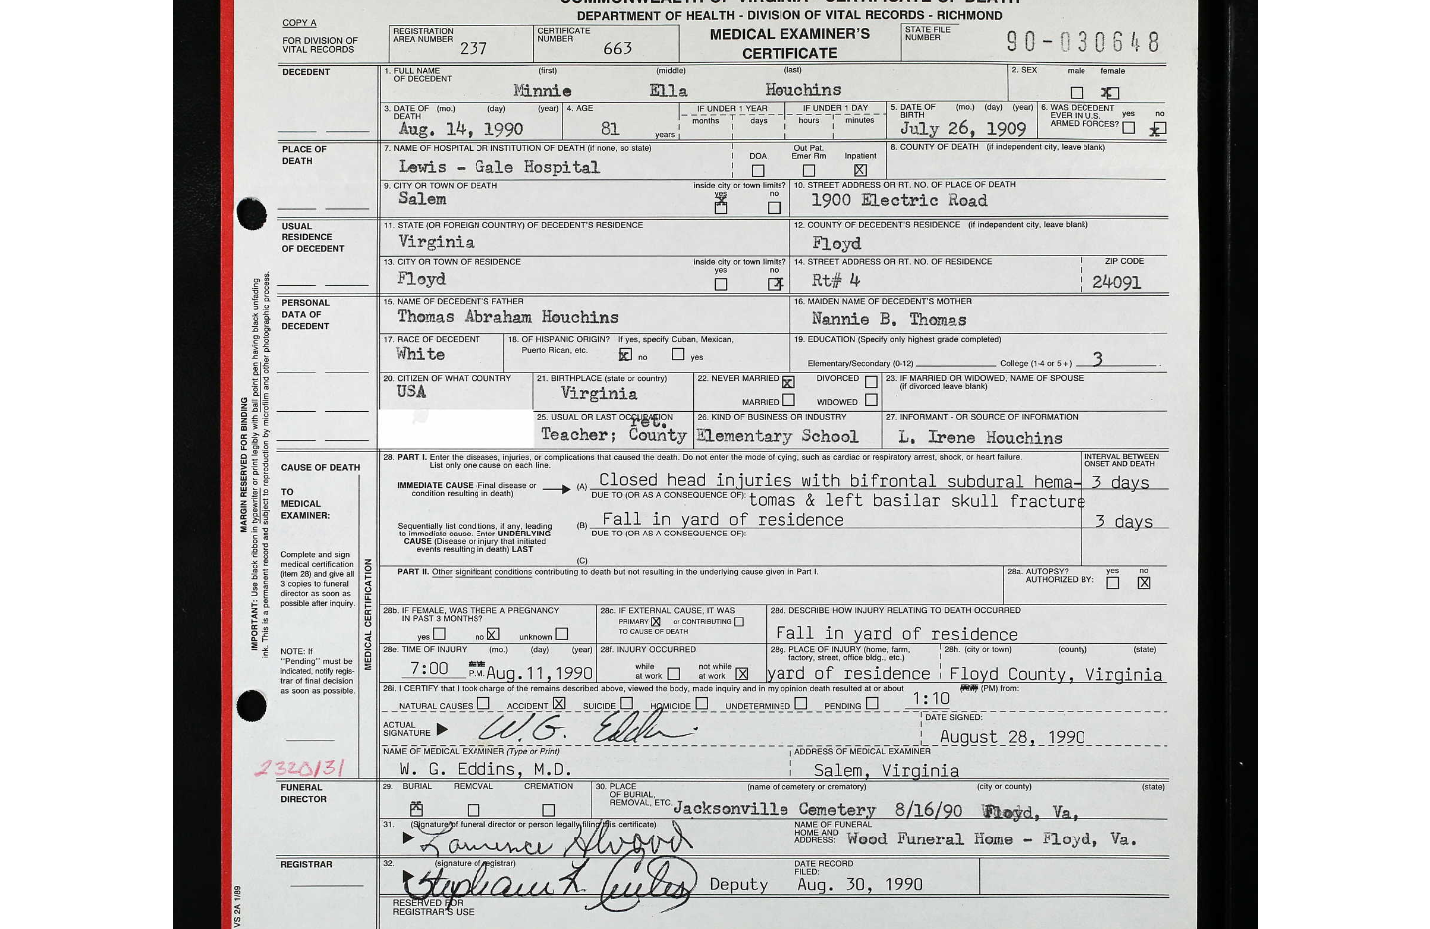 COMMONWEALTH OF VIRGINIA - CERTIFICATE OF DEATH
DEPARTMENT OF HEALTH - DIVISION OF VITAL RECORDS - RICHMOND
COPY A
FOR DIVISION OF VITAL RECORDS
REGISTRATION AREA NUMBER 237
CERTIFICATE NUMBER 663
MEDICAL EXAMINER'S CERTIFICATE
STATE FILE NUMBER 90-030648
DECEDENT
1. FULL NAME OF DECEDENT (first) (middle) (last)
Minnie Ella Houchins
2. SEX male female X
3. DATE OF DEATH (mo.) (day) (year)
Aug. 14, 1990
4. AGE 81 years
IF UNDER 1 YEAR months days
IF UNDER 1 DAY hours minutes
5. DATE OF BIRTH (mo.) (day) (year)
July 26, 1909
6. WAS DECEDENT EVER IN U.S. ARMED FORCES? yes no X
PLACE OF DEATH
7. NAME OF HOSPITAL OR INSTITUTION OF DEATH (if none, so state)
Lewis - Gale Hospital
DOA Out Pat. Emer Rm Inpatient X
8. COUNTY OF DEATH (if independent city, leave blank)
9. CITY OR TOWN OF DEATH
Salem
inside city or town limits? yes X no
10. STREET ADDRESS OR RT. NO. OF PLACE OF DEATH
1900 Electric Road
USUAL RESIDENCE OF DECEDENT
11. STATE (OR FOREIGN COUNTRY) OF DECEDENT'S RESIDENCE
Virginia
12. COUNTY OF DECEDENT'S RESIDENCE (if independent city, leave blank)
Floyd
13. CITY OR TOWN OF RESIDENCE
Floyd
inside city or town limits? yes no X
14. STREET ADDRESS OR RT. NO. OF RESIDENCE
Rt# 4
ZIP CODE
24091
PERSONAL DATA OF DECEDENT
15. NAME OF DECEDENT'S FATHER
Thomas Abraham Houchins
16. MAIDEN NAME OF DECEDENT'S MOTHER
Nannie B. Thomas
17. RACE OF DECEDENT
White
18. OF HISPANIC ORIGIN? If yes, specify Cuban, Mexican, Puerto Rican, etc. X no yes
19. EDUCATION (Specify only highest grade completed)
Elementary/Secondary (0-12) College (1-4 or 5+) 3
20. CITIZEN OF WHAT COUNTRY
USA
21. BIRTHPLACE (state or country)
Virginia
22. NEVER MARRIED X DIVORCED
MARRIED WIDOWED
23. IF MARRIED OR WIDOWED, NAME OF SPOUSE (if divorced leave blank)
25. USUAL OR LAST OCCUPATION
ret.
Teacher; County
26. KIND OF BUSINESS OR INDUSTRY
Elementary School
27. INFORMANT - OR SOURCE OF INFORMATION
L. Irene Houchins
CAUSE OF DEATH
TO MEDICAL EXAMINER:
Complete and sign medical certification (item 28) and give all 3 copies to funeral director as soon as possible after inquiry.
NOTE: If "Pending" must be indicated, notify registrar of final decision as soon as possible.
MEDICAL CERTIFICATION
28. PART I. Enter the diseases, injuries, or complications that caused the death. Do not enter the mode of dying, such as cardiac or respiratory arrest, shock, or heart failure.
List only one cause on each line.
INTERVAL BETWEEN ONSET AND DEATH
IMMEDIATE CAUSE Final disease or condition resulting in death)
(A) Closed head injuries with bifrontal subdural hema- 3 days
DUE TO (OR AS A CONSEQUENCE OF): tomas & left basilar skull fracture
Sequentially list conditions, if any, leading to immediate cause. Enter UNDERLYING CAUSE (Disease or injury that initiated events resulting in death) LAST
(B) Fall in yard of residence 3 days
DUE TO (OR AS A CONSEQUENCE OF):
(C)
PART II. Other significant conditions contributing to death but not resulting in the underlying cause given in Part I.
28a. AUTOPSY? AUTHORIZED BY: yes no X
28b. IF FEMALE, WAS THERE A PREGNANCY IN PAST 3 MONTHS?
yes no X unknown
28c. IF EXTERNAL CAUSE, IT WAS
PRIMARY X or CONTRIBUTING
TO CAUSE OF DEATH
28d. DESCRIBE HOW INJURY RELATING TO DEATH OCCURRED
Fall in yard of residence
28e. TIME OF INJURY (mo.) (day) (year)
7:00 P.M. Aug.11,1990
28f. INJURY OCCURRED
while at work not while at work X
28g. PLACE OF INJURY (home, farm, factory, street, office bldg., etc.)
yard of residence
28h. (city or town) (county) (state)
Floyd County, Virginia
28i. I CERTIFY that I took charge of the remains described above, viewed the body, made inquiry and in my opinion death resulted at or about 1:10 (PM) from:
NATURAL CAUSES ACCIDENT X SUICIDE HOMICIDE UNDETERMINED PENDING
ACTUAL SIGNATURE W.G. Eddins
DATE SIGNED:
August 28, 1990
NAME OF MEDICAL EXAMINER (Type or Print)
W. G. Eddins, M.D.
ADDRESS OF MEDICAL EXAMINER
Salem, Virginia
2320131
FUNERAL DIRECTOR
29. BURIAL X REMOVAL CREMATION
30. PLACE OF BURIAL, REMOVAL, ETC. (name of cemetery or crematory) (city or county) (state)
Jacksonville Cemetery 8/16/90 Floyd, Va,
31. (Signature of funeral director or person legally filing this certificate)
NAME OF FUNERAL HOME AND ADDRESS: Wood Funeral Home - Floyd, Va.
REGISTRAR
32. (signature of registrar)
Deputy
DATE RECORD FILED:
Aug. 30, 1990
RESERVED FOR REGISTRAR'S USE
VS 2A 1/89
MARGIN RESERVED FOR BINDING
IMPORTANT: Use black ribbon in typewriter or print legibly with ball point pen having black unfading ink. This is a permanent record and subject to reproduction by microfilm and other photographic process.